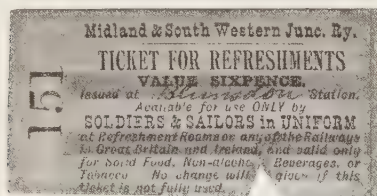 Midland & South Western Junc. Ry.
TICKET FOR REFRESHMENTS
VALUE SIXPENCE.
Issued at Station.
Available for use ONLY by
SOLDIERS & SAILORS in UNIFORM
at Refreshment Rooms on any of the Railways
in Great Britain and Ireland, and valid only
for Solid Food, Non-alcoholic Beverages, or
Tobacco No change will given if this
ticket is not fully used.
151